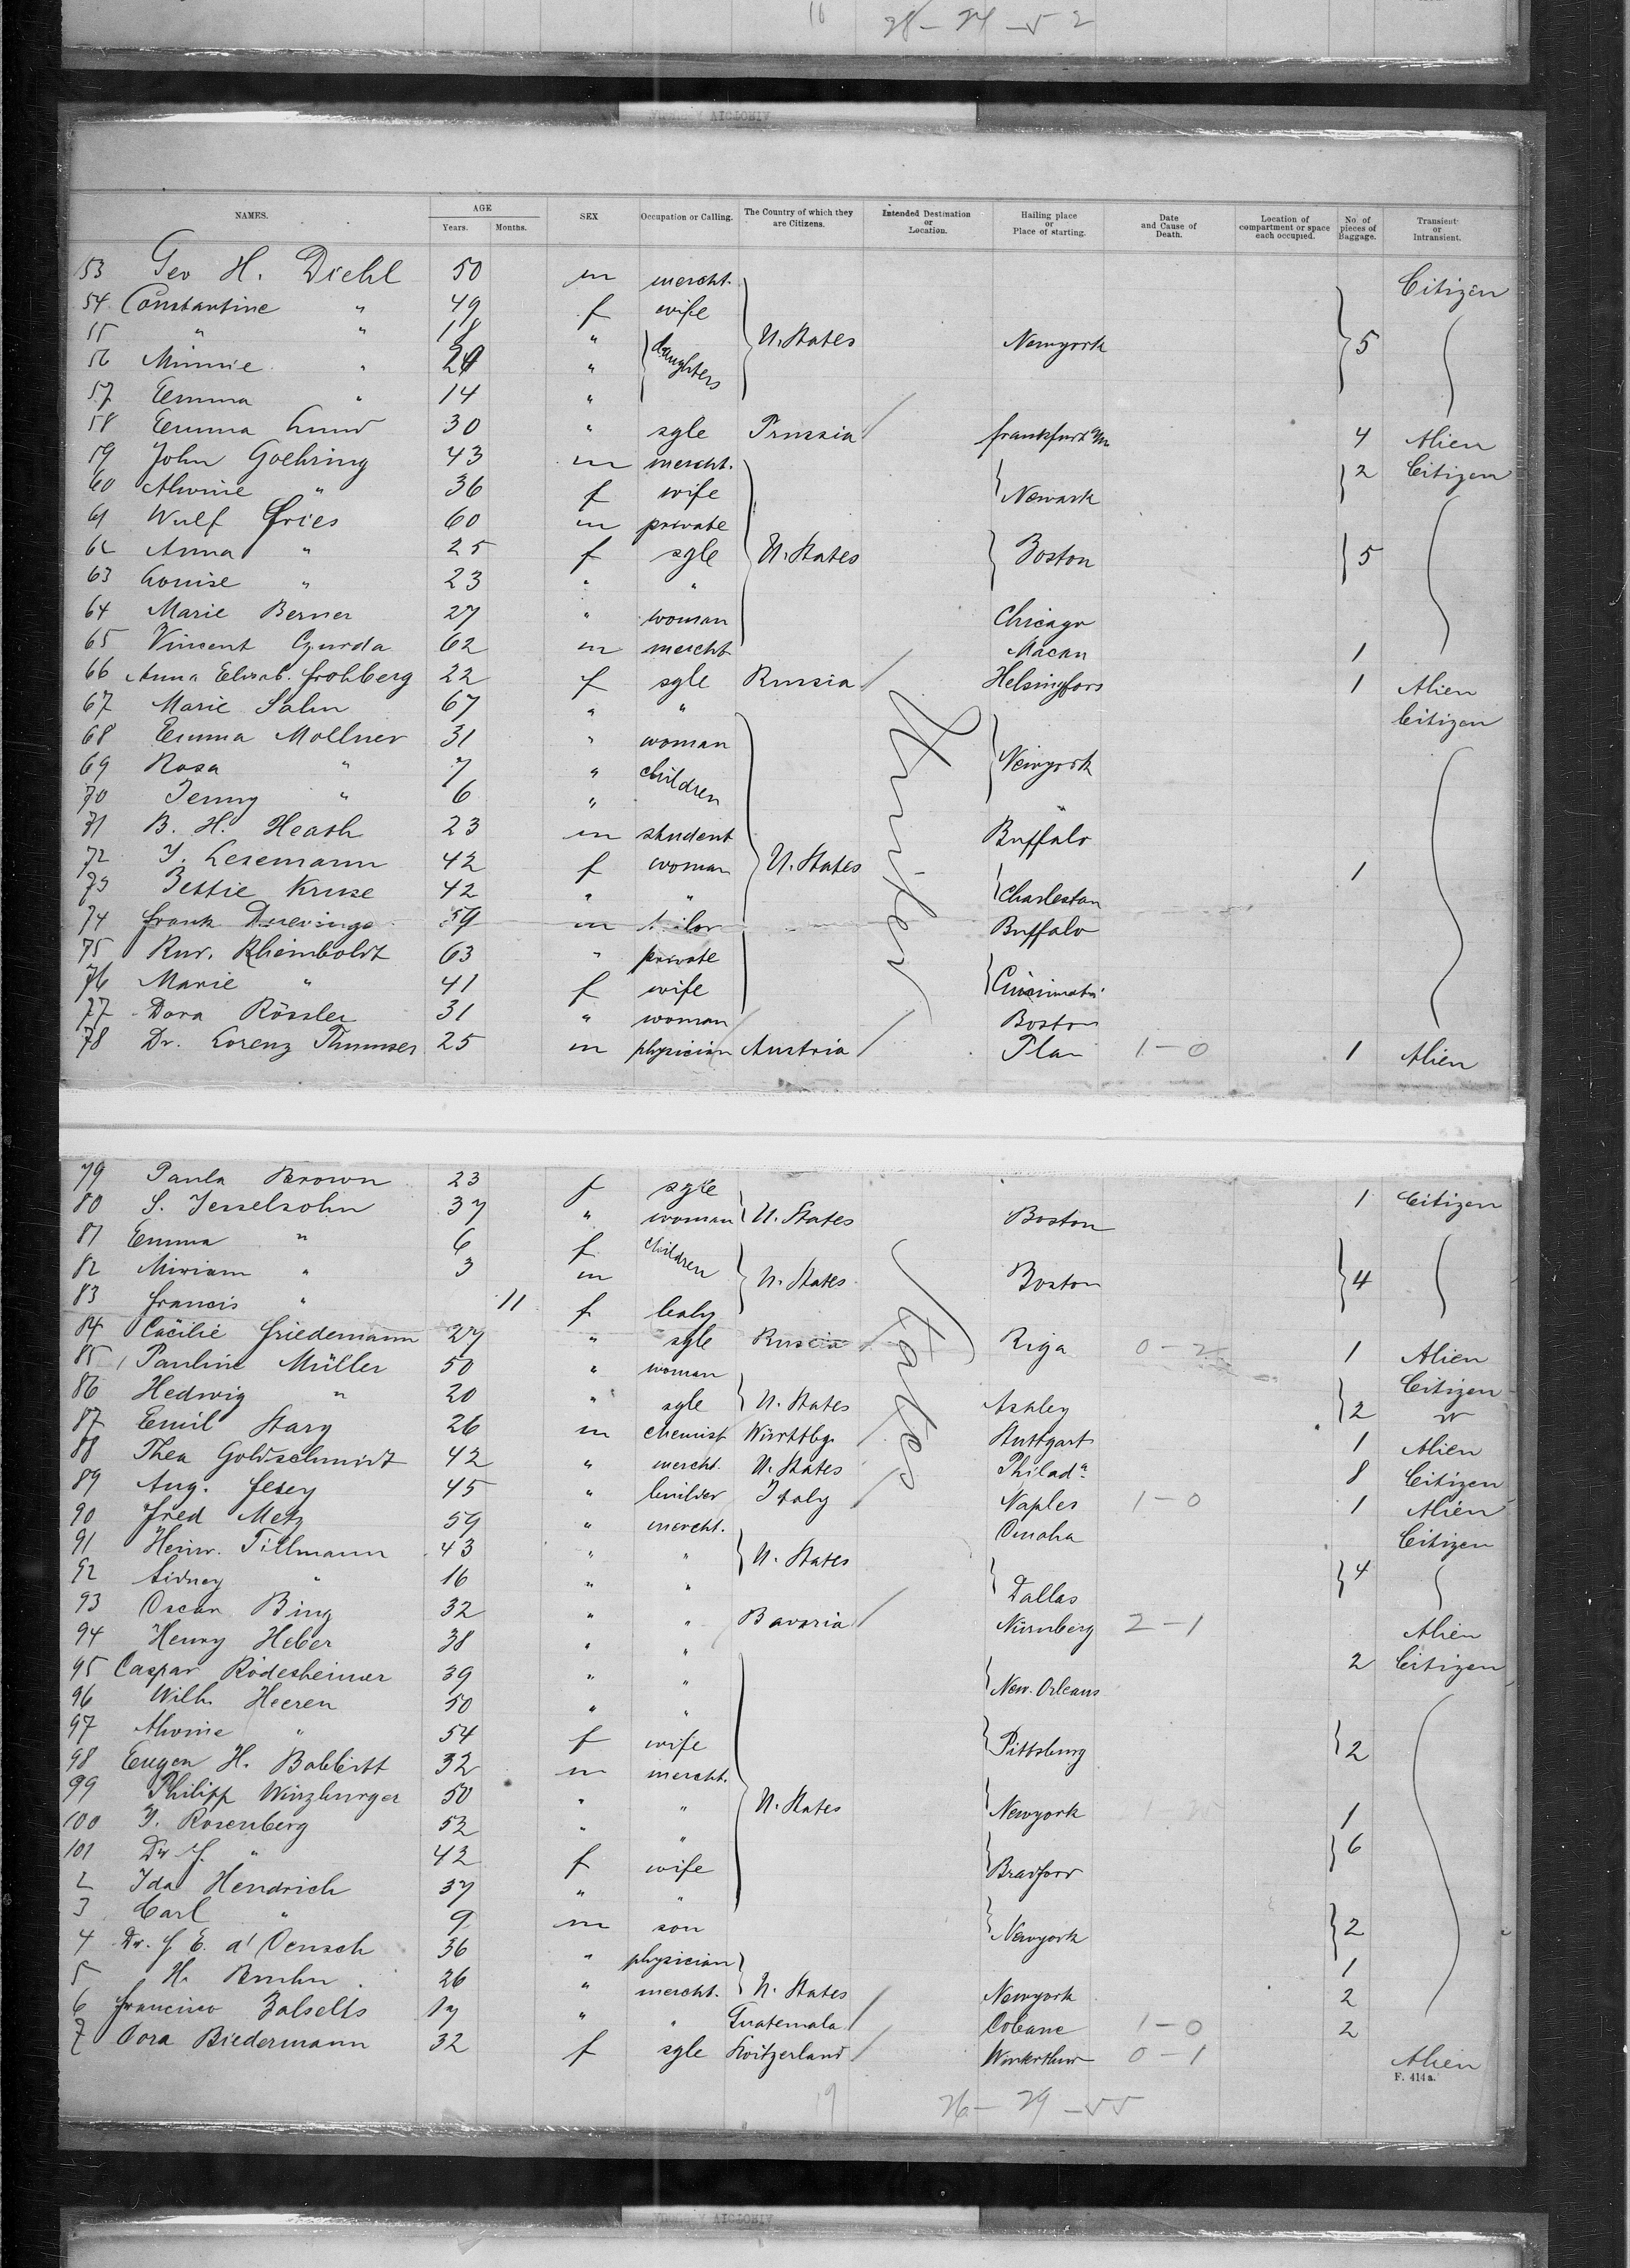 28 - 24 - 52
NAMES. AGE Years. Months. SEX Occupation or Calling. The Country of which they are Citizens. Intended Destination or Location. Hailing place or Place of starting. Date and Cause of Death. Location of compartment or space each occupied. No. of pieces of Baggage. Transient or Intransient.
53 Geo H. Diehl 50 m mercht. Citizen
54 Constantine " 49 f wife
55 " " 18 " daughters U. States Newyork 5
56 Minnie " "
57 Emma " 14 "
58 Emma 30 " sgle Prussia frankfurt a/m 4 Alien
59 John Goehring 43 m mercht. 2 Citizen
60 Alwine " 36 f wife Newark
61 Wulf Fries 60 m private
62 Anna " 25 f sgle U. States Boston 5
63 Louise " 23 " "
64 Marie Berner 27 " woman Chicago
65 Vincent Czurda 62 m mercht Macan 1
66 Anna Elisab. frohberg 22 f sgle Russia Helsingfors 1 Alien
67 Marie Salm 67 " " Citizen
68 Emma Mollner 31 " woman
69 Rosa " 7 " children Newyork
70 Jenny " 6 "
71 B. H. Heath 23 m student Buffalo
72 J. Lesemann 42 f woman U. States 1
73 Bettie Kruse 42 " " Charleston
74 frank 59 m Buffalo
75 Rheinboldt 63 " private
76 Marie " 41 f wife Cincinnati
77 Dora Rössler 31 " woman Boston
78 Dr. Lorenz Thumser 25 m physician Austria Plan 1-0 1 Alien
United
79 Paula Brown 23 f sgle 1 Citizen
80 S. Jesselsohn 37 " woman U. States Boston
81 Emma " 6 f children
82 Miriam " 3 m U. States Boston 4
83 francis " 11 f baby
84 Cäcilie friedemann 27 " sgle Russia Riga 0-2 1 Alien
85 Pauline Müller 50 " woman Citizen
86 Hedwig " 20 " sgle U. States Ashley 2
87 Emil Stary 26 m chemist Württbg. Stuttgart 1 Alien
88 Thea Goldschmidt 42 " mercht. U. States Philada. 8 Citizen
89 Aug. 45 " builder Italy Naples 1-0 1 Alien
90 Fred Metz 59 " mercht. Omaha Citizen
91 Heinr. Tillmann 43 " " U. States
92 Sidney " 16 " " Dallas 4
93 Oscar Bing 32 " " Bavaria Nürnberg 2-1 Alien
94 Henry Heber 38 " " 2 Citizen
95 Caspar Rödesheimer 39 " " New Orleans
96 Wilh. Heeren 50 " "
97 Alwine " 54 f wife Pittsburg 2
98 Eugen H. Babbitt 32 m mercht.
99 Philipp Winzburger 50 " " U. States Newyork 1
100 J. Rosenberg 52 " "
101 " 42 f wife Bradford 6
2 Ida Hendrich 37 " "
3 Carl " 9 m son Newyork 2
4 Dr. f E. d'Oensch 36 " physician 1
5 H. Bruhn 26 " mercht. U. States Newyork 2
6 17 " " Guatemala Cobane 1-0 2
7 Dora Biedermann 32 f sgle Switzerland Winterthur 0-1 Alien
States
F. 414 a.
19 26 - 29 - 55